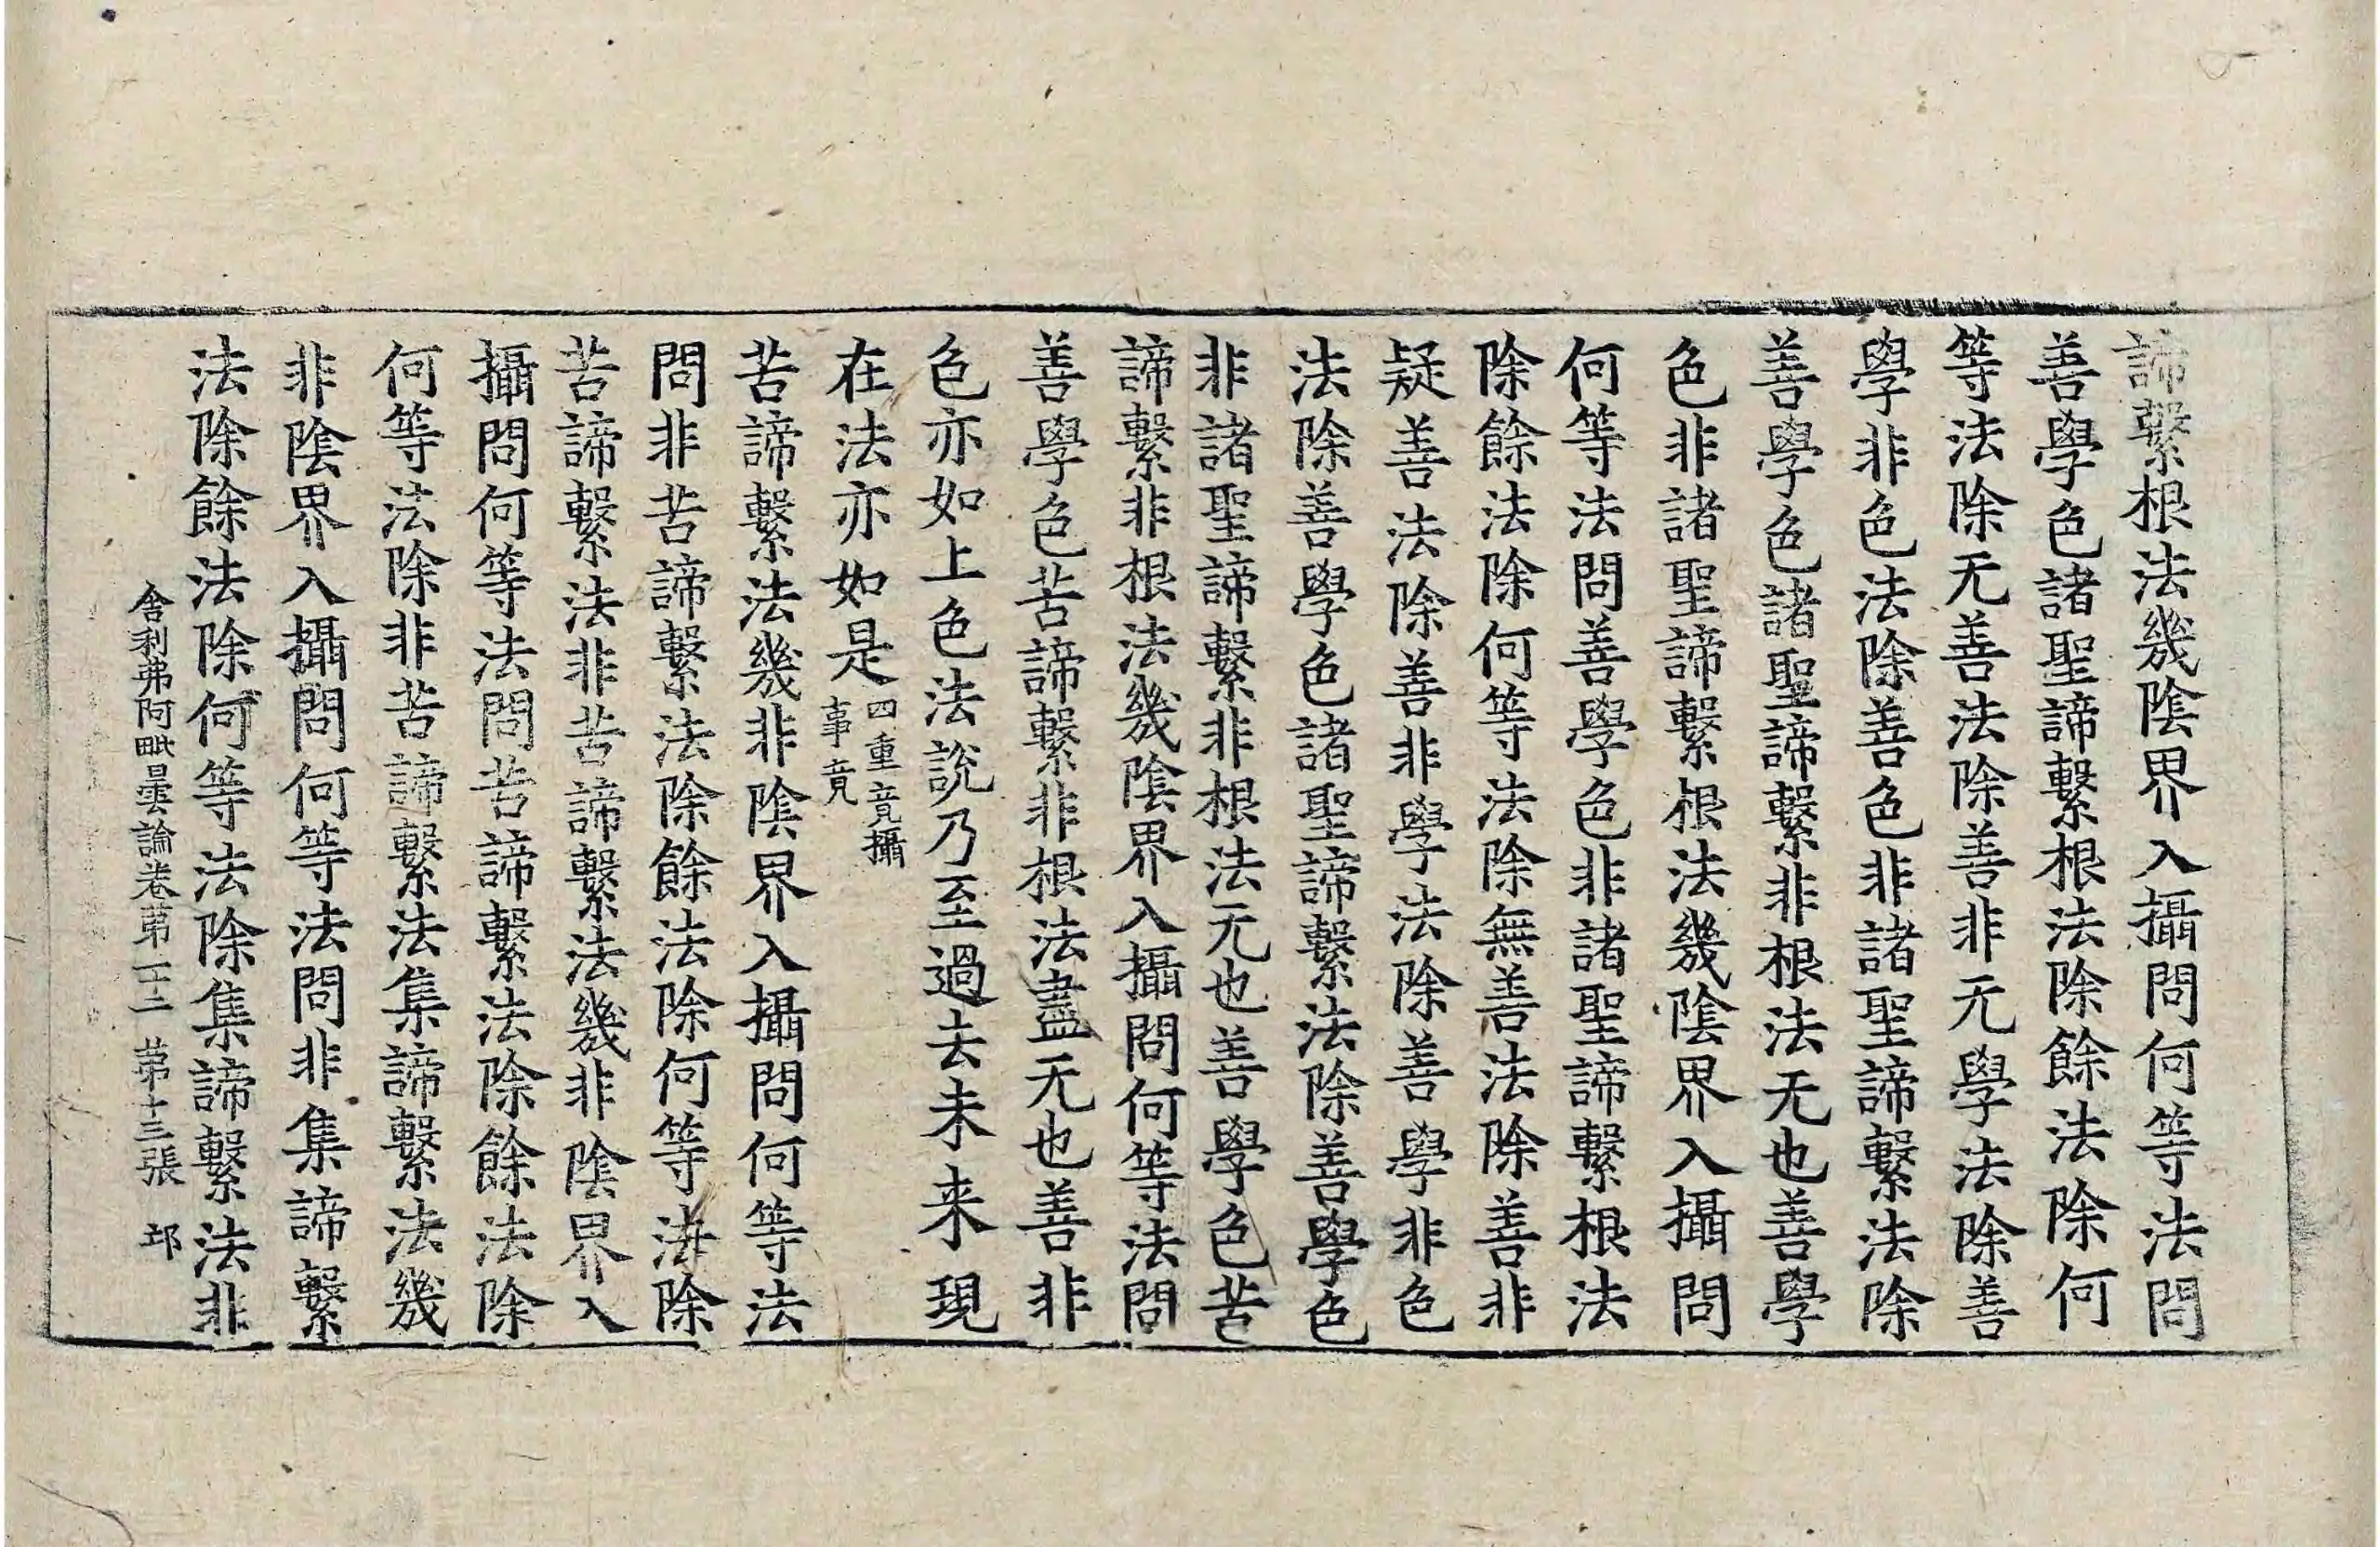 諦繫根法幾陰界入攝問何等法問
善學色諸聖諦繫根法除餘法除何
等法除无善法除善非无學法除善
學非色法除善色非諸聖諦繫法除
善學色諸聖諦繫非根法无也善學
色非諸聖諦繫根法幾陰界入攝問
何等法問善學色非諸聖諦繫根法
除餘法除何等法除無善法除善非
疑善法除善非學法除善學非色
法除善學色諸聖諦繫法除善學色
非諸聖諦繫非根法无也善學色苦
諦繫非根法幾陰界入攝問何等法問
善學色苦諦繫非根法盡无也善非
色亦如上色法說乃至過去未来現
在法亦如是四重竟攝事竟
苦諦繫法幾非陰界入攝問何等法
問非苦諦繫法除餘法除何等法除
苦諦繫法非苦諦繫法幾非陰界入
攝問何等法問苦諦繫法除餘法除
何等法除非苦諦繫法集諦繫法幾
非陰界入攝問何等法問非集諦繫
法除餘法除何等法除集諦繫法非
舍利弗阿毗曇論卷苐二十二 苐十三張 邛